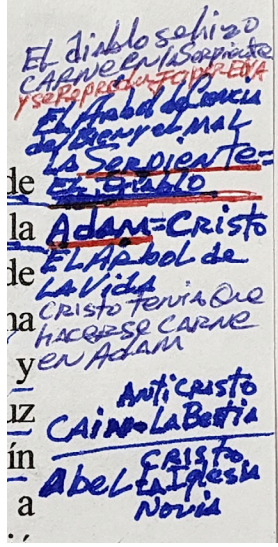 El diablo se hizo
CARNE EN la Serpiente
y se Reprodujo por EVA
El Arbol de Ciencia
del Bien y el MAL
LA SERPIENTE=
EL Diablo
ADAM=CRISTO
EL ARbol de
LA Vida
CRISTO Tenia Que
HACERSE CARNE
EN ADAM
ANTiCRisto
CAiN LA Bestia
CRisto
Abel LA Iglesia
Novia
de
la
de
na
y
uz
ín
a